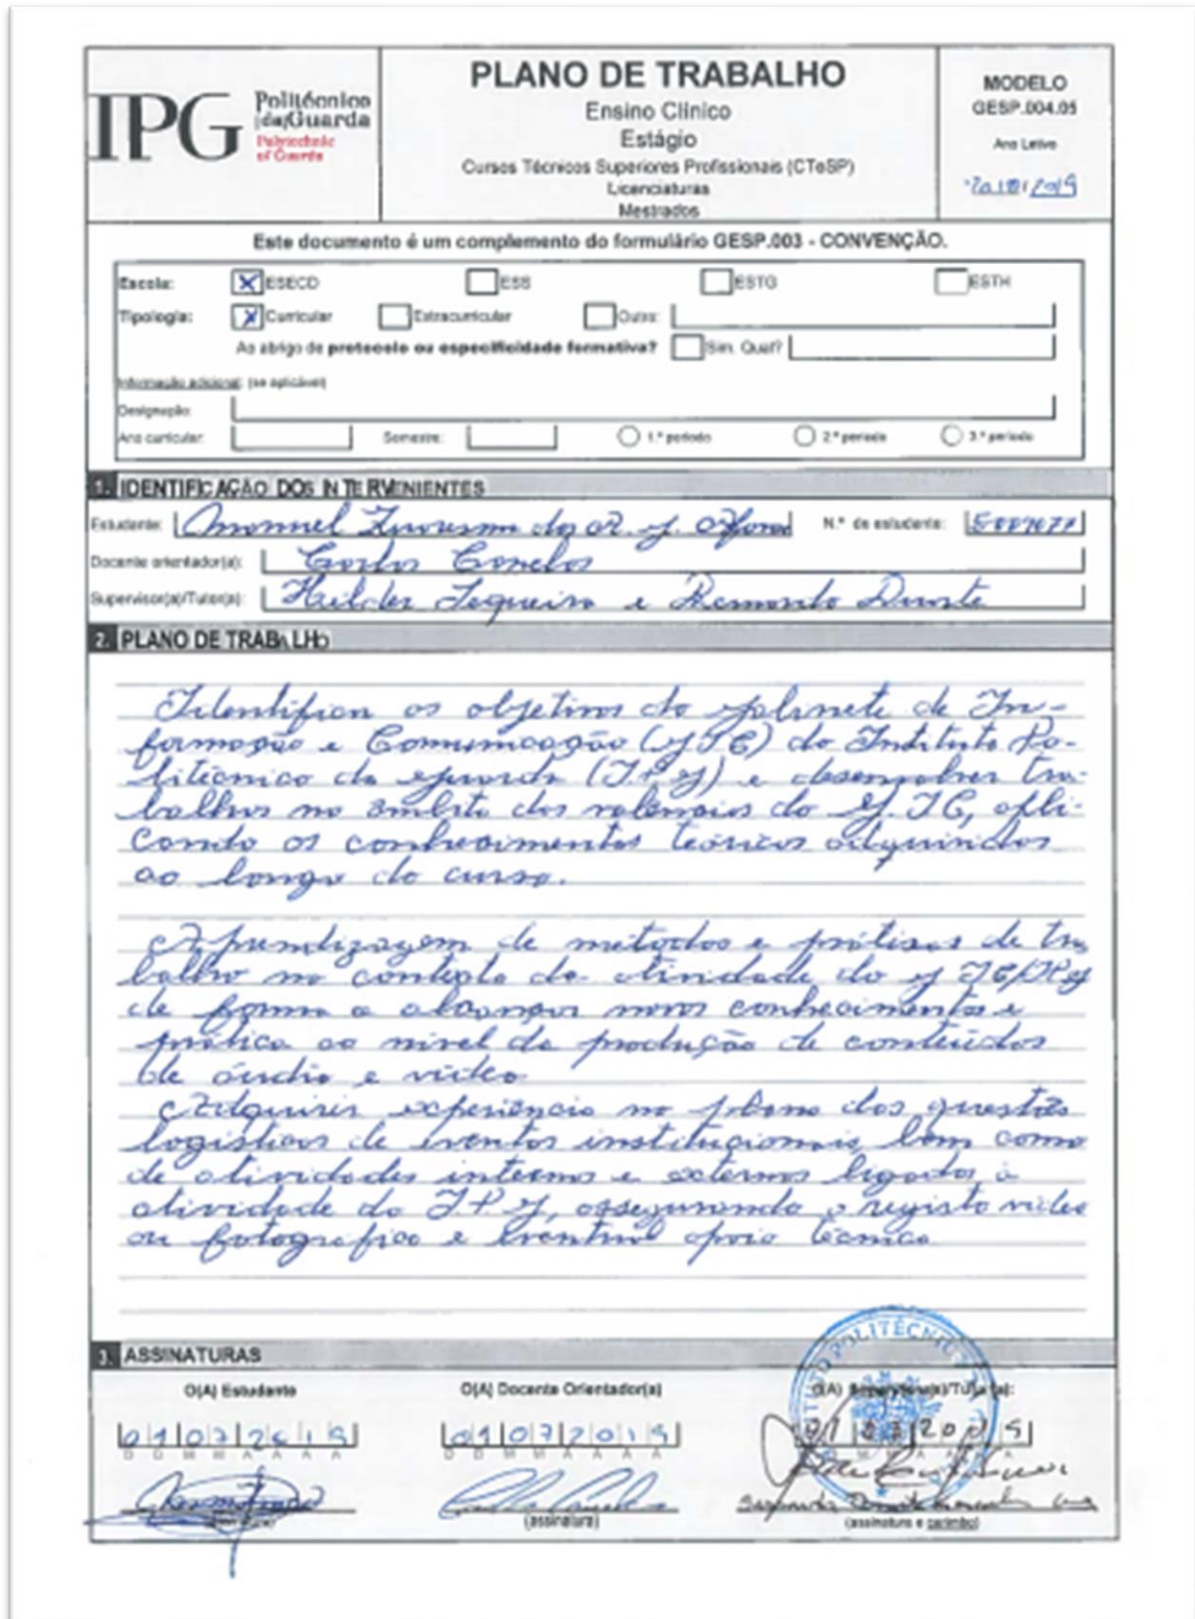 IPG
Politécnico
da Guarda
Polytechnic
of Guarda
PLANO DE TRABALHO
Ensino Clínico
Estágio
Cursos Técnicos Superiores Profissionais (CTeSP)
Licenciaturas
Mestrados
MODELO
GESP.004.05
Ano Letivo
2018/2019
Este documento é um complemento do formulário GESP.003 - CONVENÇÃO.
Escola: X ESECD ESS ESTG ESTH
Tipologia: X Curricular Extracurricular Outra:
Ao abrigo de protocolo ou especificidade formativa? Sim. Qual?
Informação adicional: (se aplicável)
Designação:
Ano curricular: Semestre: 1.º período 2.º período 3.º período
1. IDENTIFICAÇÃO DOS INTERVENIENTES
Estudante: N.º de estudante:
Docente orientador(a): Carlos Canelas
Supervisor(a)/Tutor(a): Helder Sequeira e Duarte
2. PLANO DE TRABALHO
Identificar os objetivos do gabinete de In-
formação e Comunicação (GIC) do Instituto Po-
litécnico da Guarda (IPG) e desenvolver tra-
balhos no âmbito das valências do G.I.C, apli-
cando os conhecimentos teóricos adquiridos
ao longo do curso.
Aprendizagem de métodos e práticas de tra
balho no contexto da atividade do GIC/IPG
de forma a alcançar novos conhecimentos e
prática ao nível da produção de conteúdos
de áudio e vídeo
Adquirir experiência no plano das questões
logísticas de eventos institucionais, bem como
de atividades internas e externas ligadas à
atividade do I.P.G, assegurando o registo vídeo
ou fotográfico e eventual apoio técnico
3. ASSINATURAS
O(A) Estudante O(A) Docente Orientador(a) O(A) Supervisor(a)/Tutor(a):
01072019 01072019
D D M M A A A A D D M M A A A A
(assinatura) (assinatura) (assinatura e carimbo)